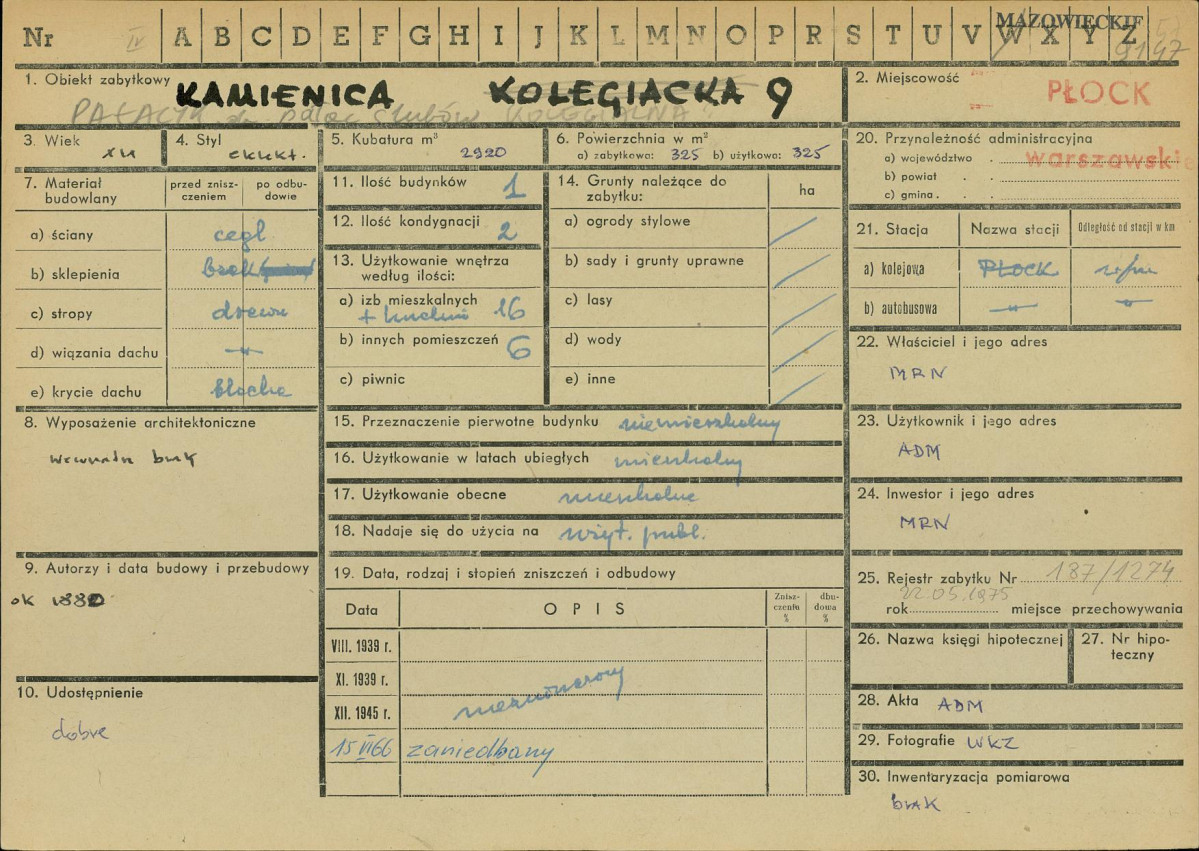 Nr IV A B C D E F G H I J K L M N O P R S T U V W X Y Z MAZOWIECKIE
9147
1. Obiekt zabytkowy KAMIENICA KOLEGIACKA 9
PAŁACYK ob. pałac ślubów KOLEGIALNA
2. Miejscowość PŁOCK
3. Wiek XIX
4. Styl eklekt.
5. Kubatura m³ 2920
6. Powierzchnia w m²
a) zabytkowa: 325 b) użytkowa: 325
7. Materiał budowlany
przed zniszczeniem
po odbudowie
a) ściany cegł
b) sklepienia brak
c) stropy drewn
d) wiązania dachu -"-
e) krycie dachu blacha
8. Wyposażenie architektoniczne
wewnątrz brak
9. Autorzy i data budowy i przebudowy
ok 1880
10. Udostępnienie
dobre
11. Ilość budynków 1
12. Ilość kondygnacji 2
13. Użytkowanie wnętrza według ilości:
a) izb mieszkalnych 16
+ kuchni
b) innych pomieszczeń 6
c) piwnic
14. Grunty należące do zabytku:
ha
a) ogrody stylowe
b) sady i grunty uprawne
c) lasy
d) wody
e) inne
15. Przeznaczenie pierwotne budynku niemieszkalny
16. Użytkowanie w latach ubiegłych mieszkalny
17. Użytkowanie obecne mieszkalne
18. Nadaje się do użycia na użyt. publ.
19. Data, rodzaj i stopień zniszczeń i odbudowy
Data OPIS Zniszczenia % dbudowa %
VIII. 1939 r.
XI. 1939 r.
XII. 1945 r. niezniszczony
15 VI 66 zaniedbany
20. Przynależność administracyjna
a) województwo warszawskie
b) powiat
c) gmina
21. Stacja Nazwa stacji Odległość od stacji w km
a) kolejowa PŁOCK
b) autobusowa -"- -"-
22. Właściciel i jego adres
MRN
23. Użytkownik i jego adres
ADM
24. Inwestor i jego adres
MRN
25. Rejestr zabytku Nr 187/1274
22.05.1975
rok miejsce przechowywania
26. Nazwa księgi hipotecznej
27. Nr hipoteczny
28. Akta ADM
29. Fotografie WKZ
30. Inwentaryzacja pomiarowa
brak